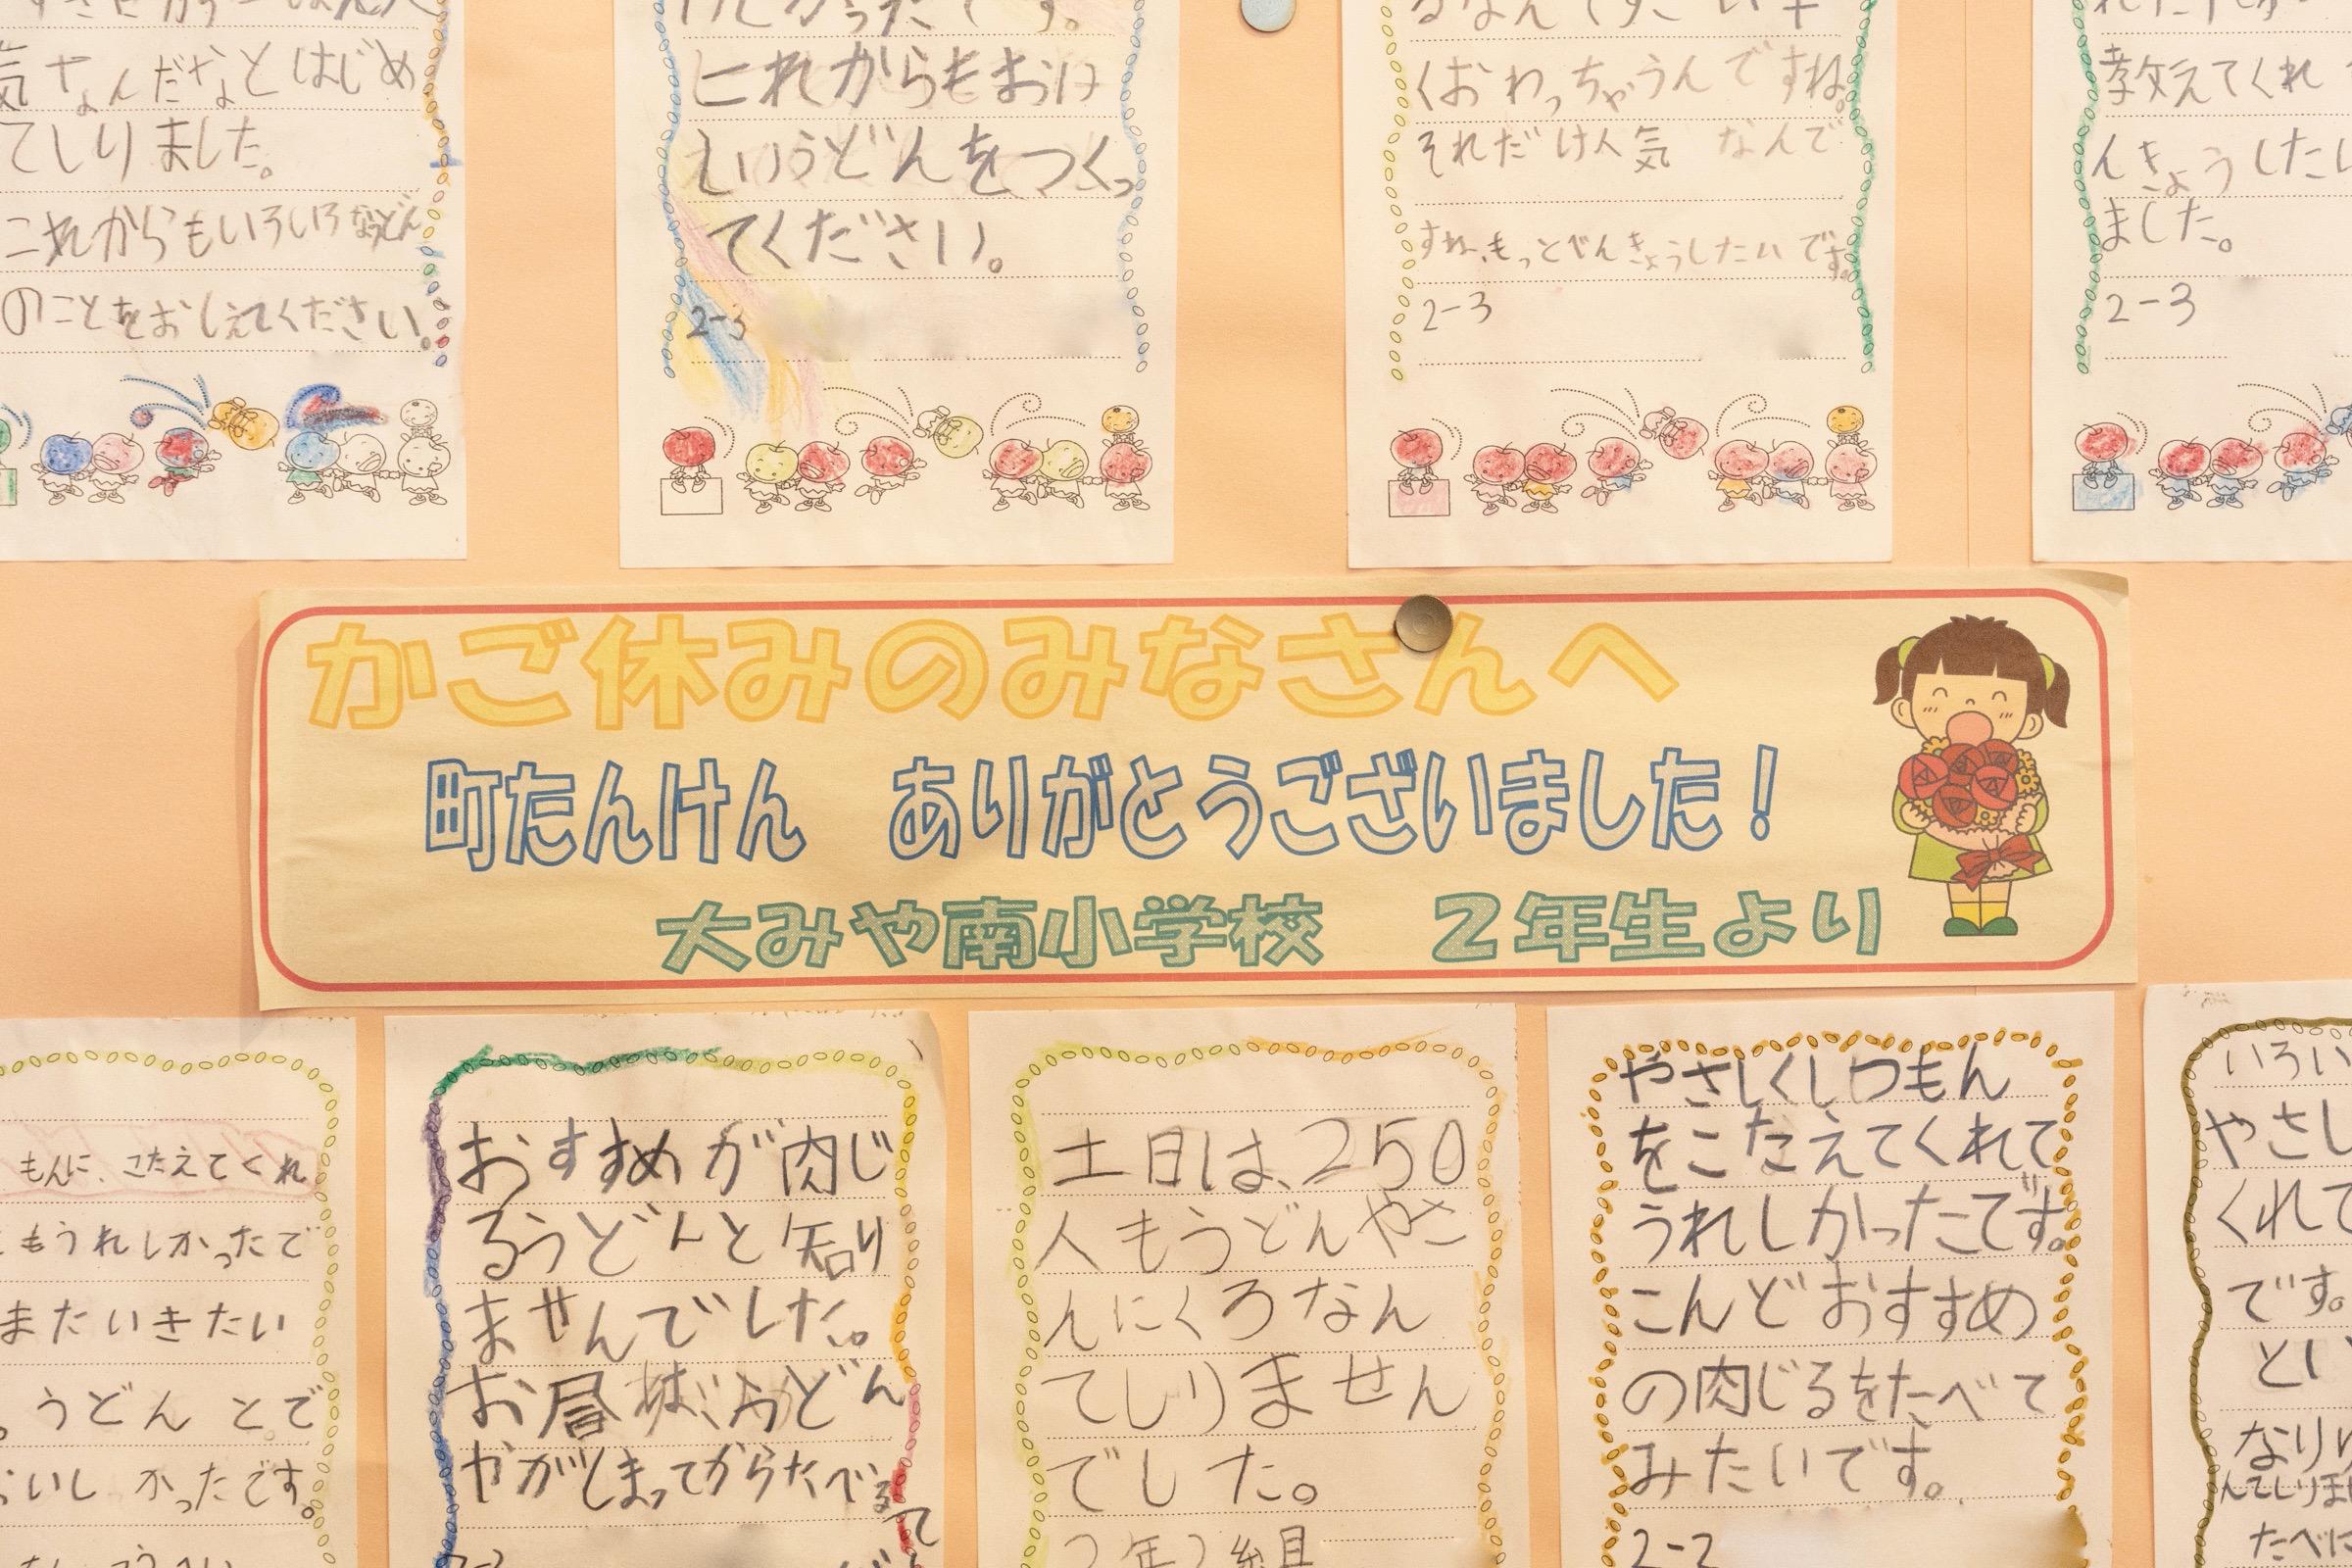 気なんだなとはじめ
てしりました。
これからもいろいろなうどん
のことをおしえてください。
これからもおい
しいうどんをつくっ
てください。
2-3
くおわっちゃうんですね。
それだけ人気 なんで
すね。もっとべんきょうしたいです。
2-3
教えてくれ
んきょうしたい
ました。
2-3
かご休みのみなさんへ
町たんけん ありがとうございました!
大みや南小学校 2年生より
もんに、こたえてくれ
もうれしかったで
またいきたい
。うどん とで
いし かったです。
おすすめが肉じ
るうどんと知り
ませんでした。
お昼
やがしまってからたべる
2-3
土日は、250
人もうどんやさ
んにくるなん
てしりません
でした。
2年2組
やさしくしつもん
をこたえてくれて
うれしかったです。
こんどおすすめ
の肉じるをたべて
みたいです。
2-2
いろい
やさし
くれて
です。
とい
なりゆ
んてしりま
たべに